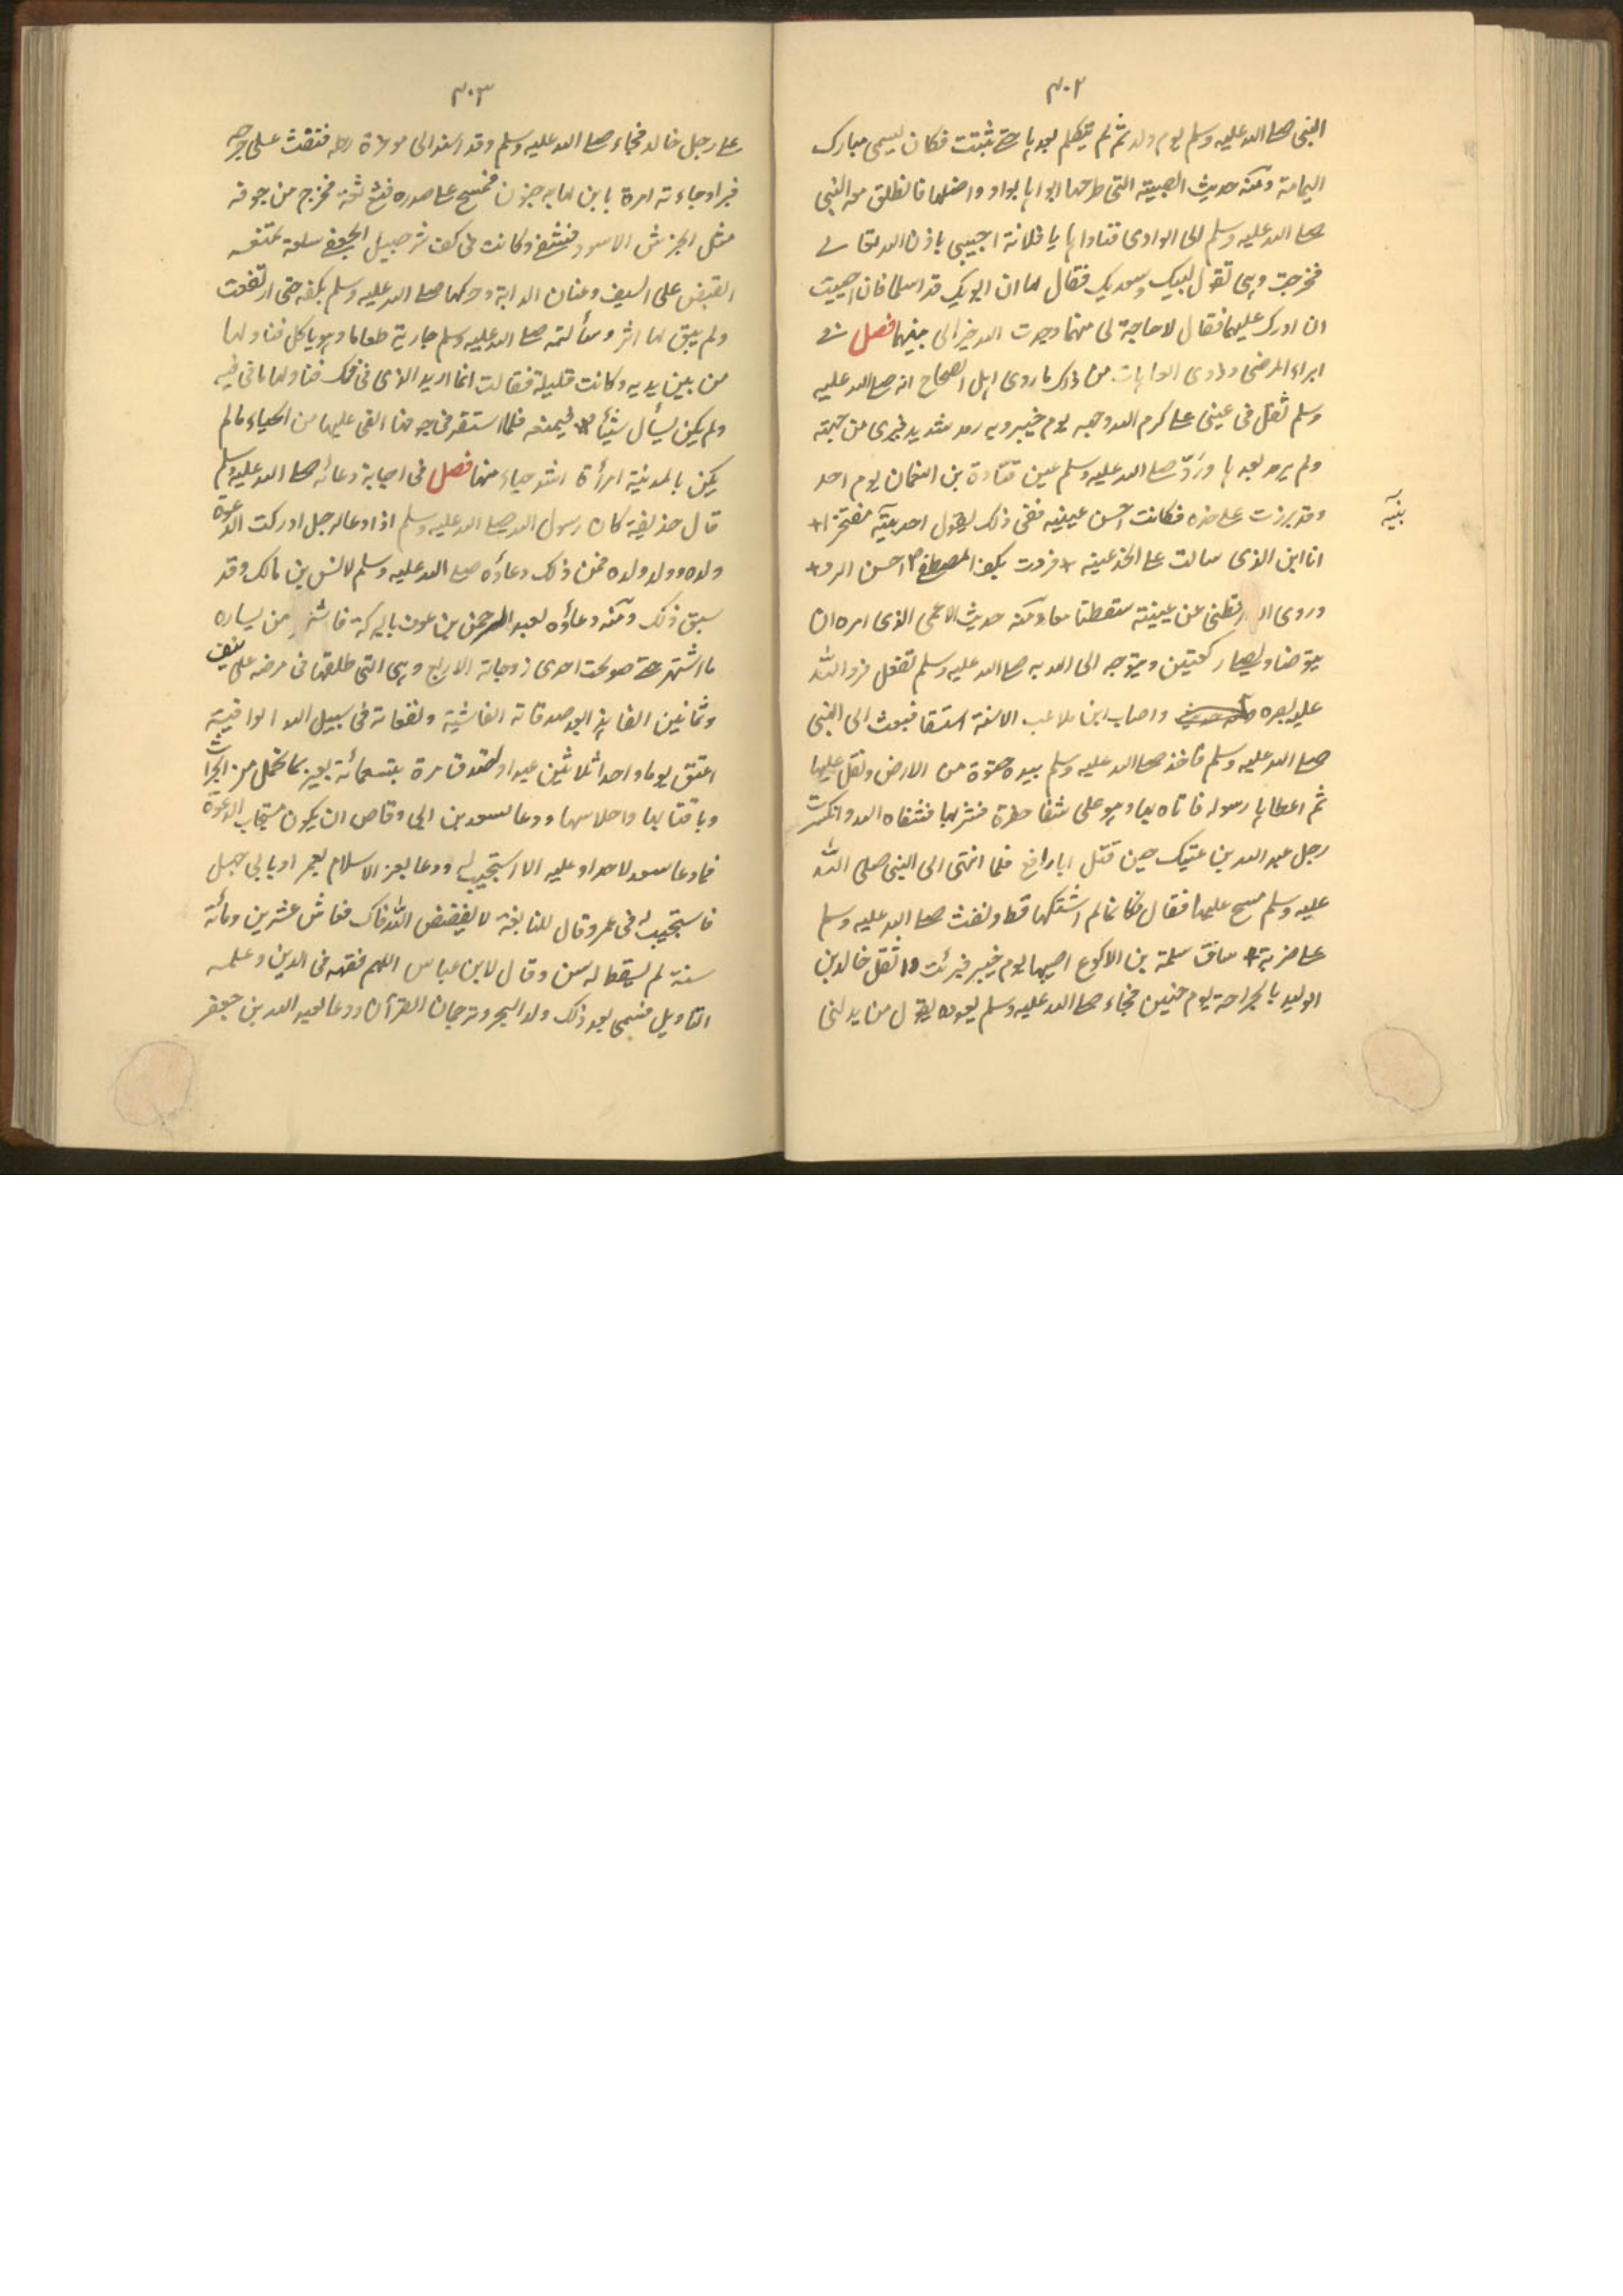 ٣٠٢
النبى صلى الله عليه وسلم يوم ولد ثم لم يتكلم بعدها حتى شبت فكان يسمى مبارك
اليمامة ومنه حديث الصبية التى طرحها ابواها بواد واضلها فانطلق معه النبى
صلى الله عليه وسلم الى الوادى فناداها يا فلانة اجيبى باذن الله تعالى
فخرجت وهى تقول لبيك وسعديك فقال لها ان ابويك قد اسلما فان احببت
ان اردك عليهما فقال لا حاجة لى منهما وجدت الله خيرا لى منهما فصل فى
ابراء المرضى وذوى العاهات من ذلك ما روى اهل الصحاح انه صلى الله عليه
وسلم ثفل فى عينى على كرم الله وجهه يوم خيبر وبه رمد شديد فبرى من حينه
ولم يرمد بعدها وردّ صلى الله عليه وسلم عين قتادة بن النعمان يوم احد
وقد برزت على خده فكانت احسن عينيه ففى ذلك يقول احد بنيه مفتخرا +
بنيه
انا ابن الذى سالت على الخد عينه + فردت بكف المصطفى احسن الرد +
وروى الدارقطنى عن عينيه سقطتا معا ومنه حديث الاعمى الذى امره ان
يتوضا ويصلى ركعتين ويتوجه الى الله به صلى الله عليه وسلم ففعل فرد الله
عليه بصره واصاب ابن ملاعب الاسنة استسقا فبعث الى النبى
صلى الله عليه وسلم فاخذ صلى الله عليه وسلم بيده حثوة من الارض وتفل عليها
ثم اعطاها رسوله فاتاه بها وهو على شفا فشربها فشفاه الله وانكسرت
رجل عبد الله بن عتيك حين قتل ابا رافع فلما انتهى الى النبى صلى الله
عليه وسلم مسح عليها فقال فكانما لم اشتكها قط ونفث صلى الله عليه وسلم
على ضربة ساق سلمة بن الاكوع اصيبها يوم خيبر فبرئت وا ثقل خالد بن
الوليد بالجراحة يوم حنين فجاء صلى الله عليه وسلم يعوده يقول من يدلنى
٣٠٣
على رجل خالد فجاء صلى الله عليه وسلم وقد اسند الى موخرة رحله فنفث على جرحه
فبرا وجاءته امرة بابن لها به جنون فمسح على صدره فثع ثعة فخرج من جوفه
مثل الجرو الاسود فشفى وكانت فى كف شرحبيل الجعفى سلعة تمنعه
القبض على السيف وعنان الدابة وحكها صلى الله عليه وسلم بكفه حتى ارتفعت
ولم يبق لها اثر وسألته صلى الله عليه وسلم جارية طعاما وهو ياكل فناولها
من بين يديه وكانت قليلة فقالت انما اريد الذى فى فمك فناولها ما فى فيه
ولم يكن يسأل شيئا فيمنعه فلما استقر فى جوفها القى عليها من الحياء ما لم
يكن بالمدينة امرأة اشد حياء منها فصل فى اجابة دعائه صلى الله عليه وسلم
قال حذيفة كان رسول الله صلى الله عليه وسلم اذا دعا لرجل ادركت الدعوة
ولده وولد ولده فمن ذلك دعاؤه صلى الله عليه وسلم لانس بن مالك وقد
سبق ذلك ومنه دعاؤه لعبد الرحمن بن عوف بالبركة من يساره
ما اشتهر حتى صولحت احدى زوجاته الاربع وهى التى طلقها فى مرضه على نيف
وثمانين الفا بعد صدقاته الفاشية ونفقاته فى سبيل الله الوافية
اعتق يوما واحدا ثلاثين عبدا وتصدق مرة بتسعمائة بعير بما تحمل من
وباقتابها واحلاسها ودعا لسعد بن ابى وقاص ان يكون مستجاب الدعوة
فما دعا سعد لاحد او عليه الا استجيب له ودعا بعز الاسلام بعمر او بابى جهل
فاستجيب له فى عمر وقال للنابغة لا يفضض الله فاك فعاش عشرين ومائة
سنة لم يسقط له سن وقال لابن عباس اللهم فقهه فى الدين وعلمه
التاويل فسمى بعد ذلك وترجمان القرآن ودعا لعبد الله بن جعفر